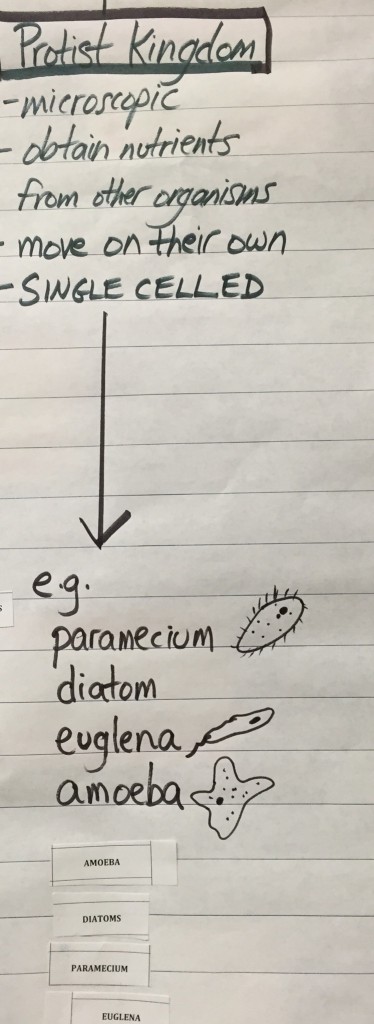 Protist Kingdom
-microscopic
- obtain nutrients
from other organisms
- move on their own
- SINGLE CELLED
e.g.
paramecium
diatom
euglena
amoeba
AMOEBA
DIATOMS
PARAMECIUM
EUGLENA